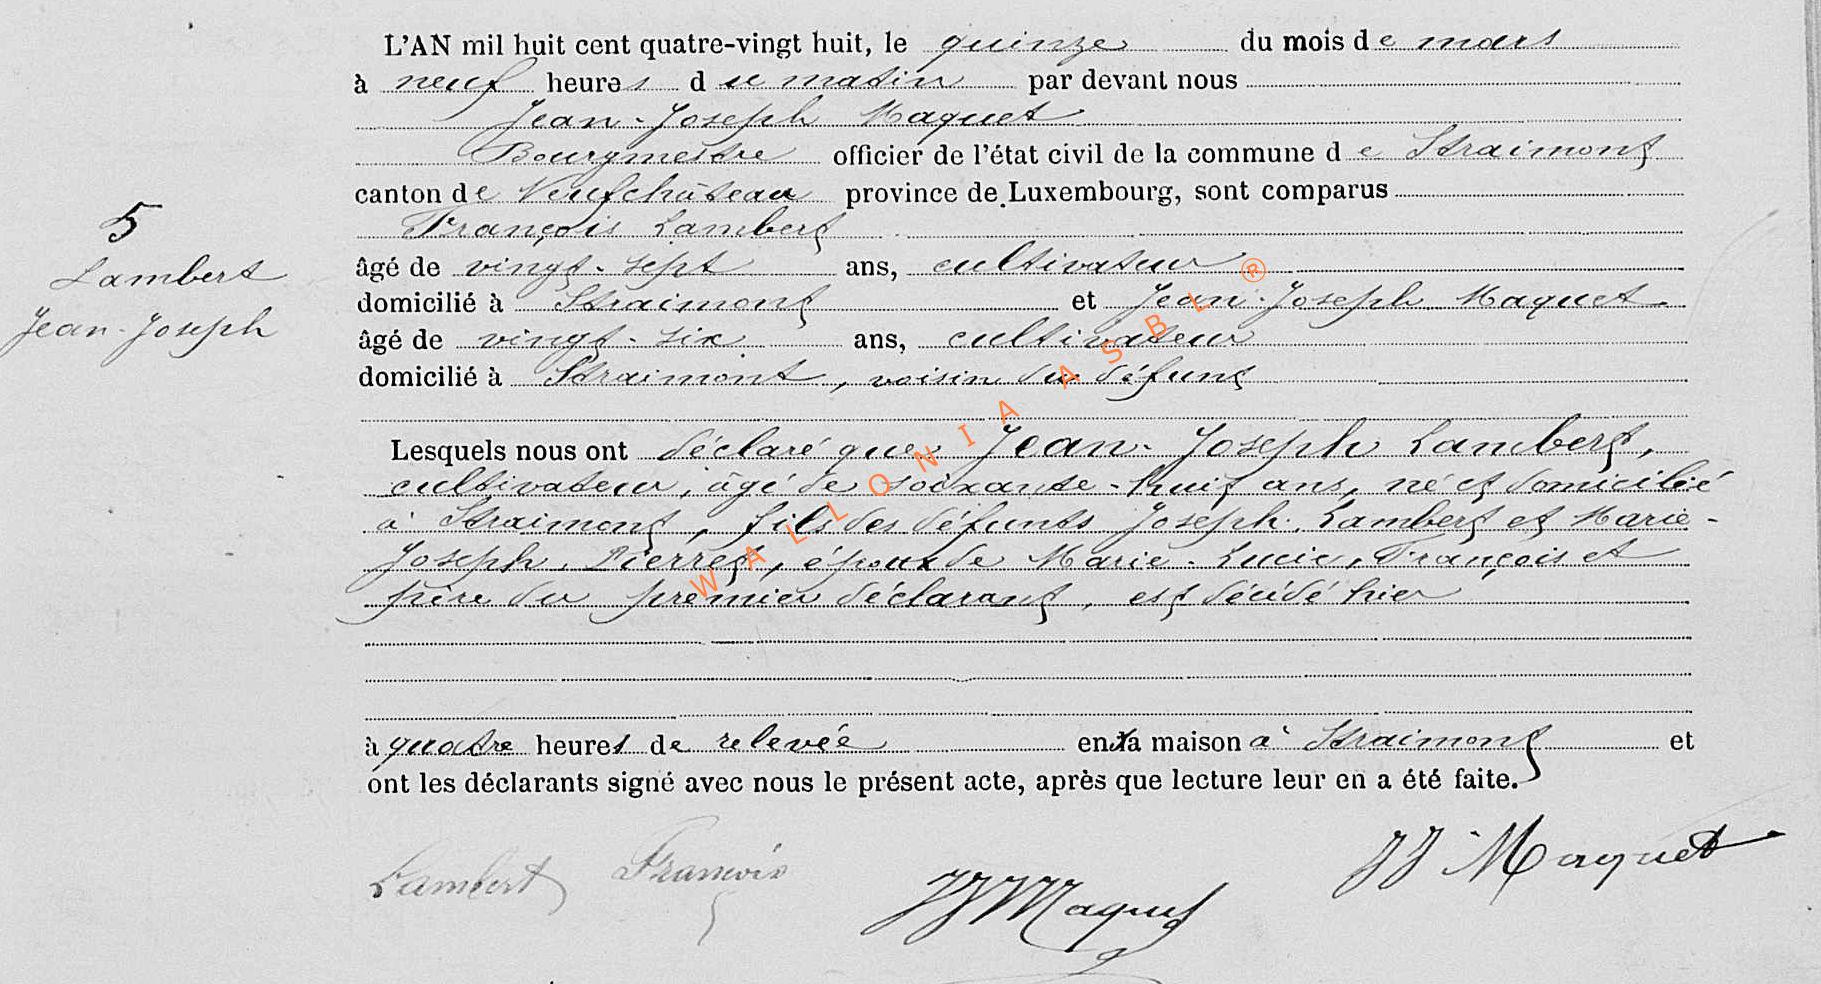 L'AN mil huit cent quatre-vingt huit, le quinze du mois de mars
à neuf heures du matin par devant nous
Jean-Joseph Maquet
Bourgmestre officier de l'état civil de la commune de Straimont
canton de Neufchâteau province de Luxembourg, sont comparus
François Lambert
âgé de vingt-sept ans, cultivateur
domicilié à Straimont et Jean-Joseph Maquet
âgé de vingt-six ans, cultivateur
domicilié à Straimont, voisin du défunt
5
Lambert
Jean-Joseph
Lesquels nous ont déclaré que Jean-Joseph Lambert,
cultivateur, âgé de soixante-huit ans, né et domicilié
à Straimont, fils des défunts Joseph Lambert et Marie-
Joseph Pierret, époux de Marie-Lucie François et
père du premier déclarant, est décédé hier
à quatre heures de relevée en sa maison à Straimont et
ont les déclarants signé avec nous le présent acte, après que lecture leur en a été faite.
Lambert François
JJ Maquet
JJ Maquet
WALLONIA ASBL ®